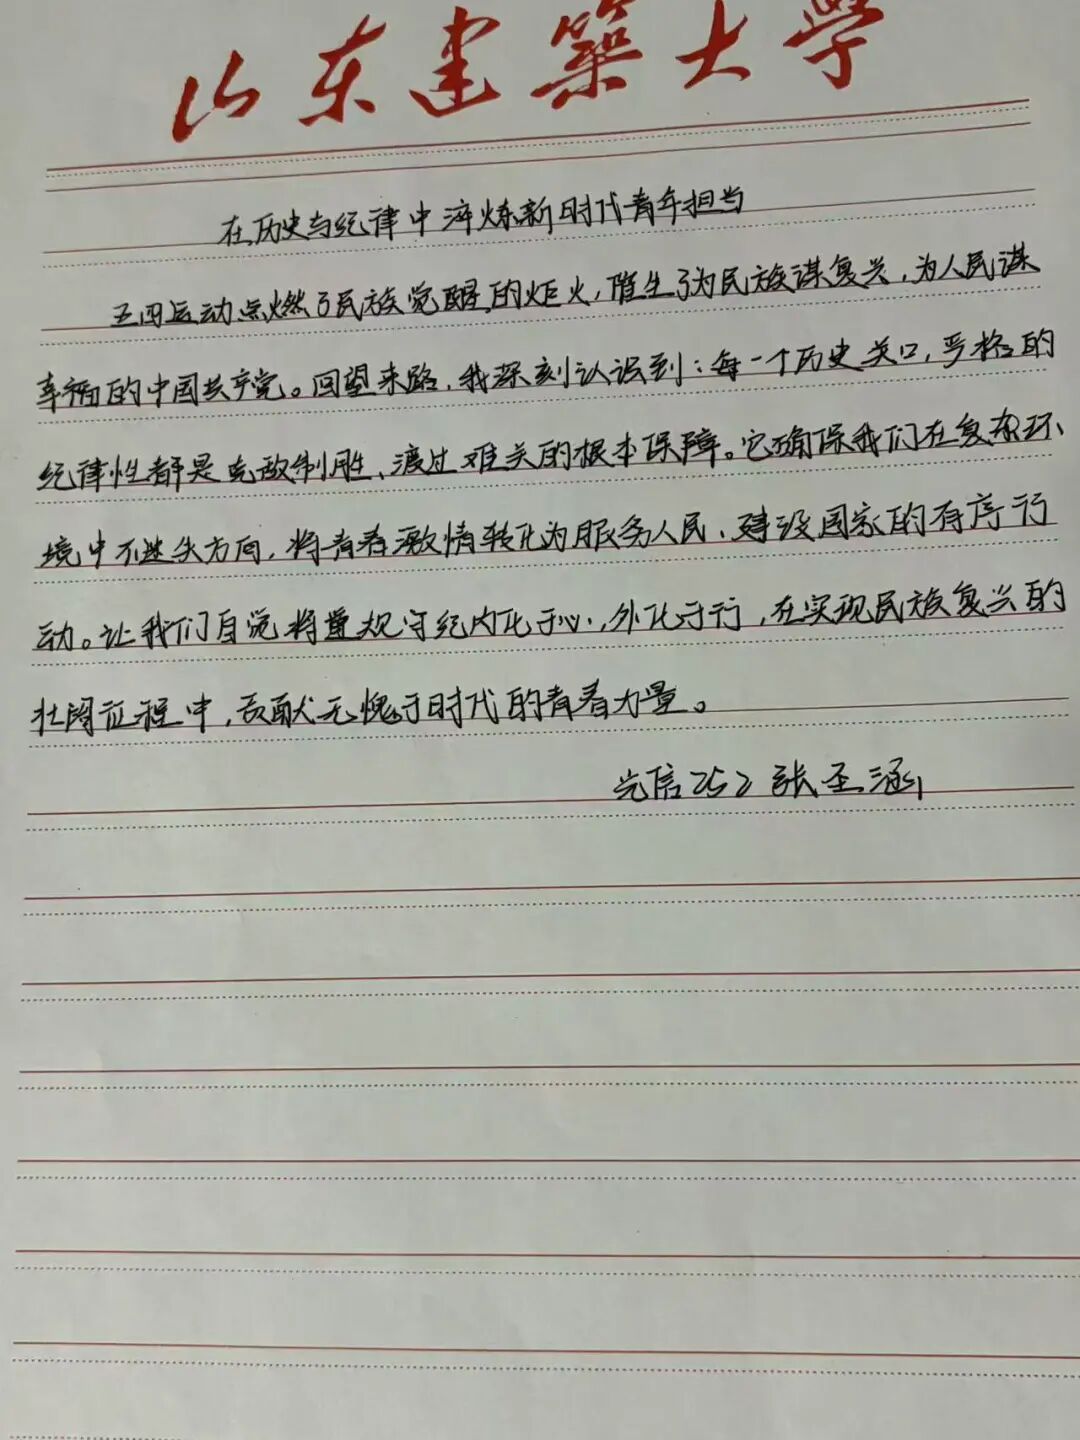 山东建筑大学
在历史与纪律中淬炼新时代青年担当
五四运动点燃了民族觉醒的炬火,催生了为民族谋复兴,为人民谋
幸福的中国共产党。回望来路,我深刻认识到:每一个历史关口,严格的
纪律性都是克敌制胜、渡过难关的根本保障。它确保我们在复杂环
境中不迷失方向,将青春激情转化为服务人民、建设国家的有序行
动。让我们自觉将遵规守纪内化于心,外化于行,在实现民族复兴的
壮阔征程中,贡献无愧于时代的青春力量。
光信252 张圣涵